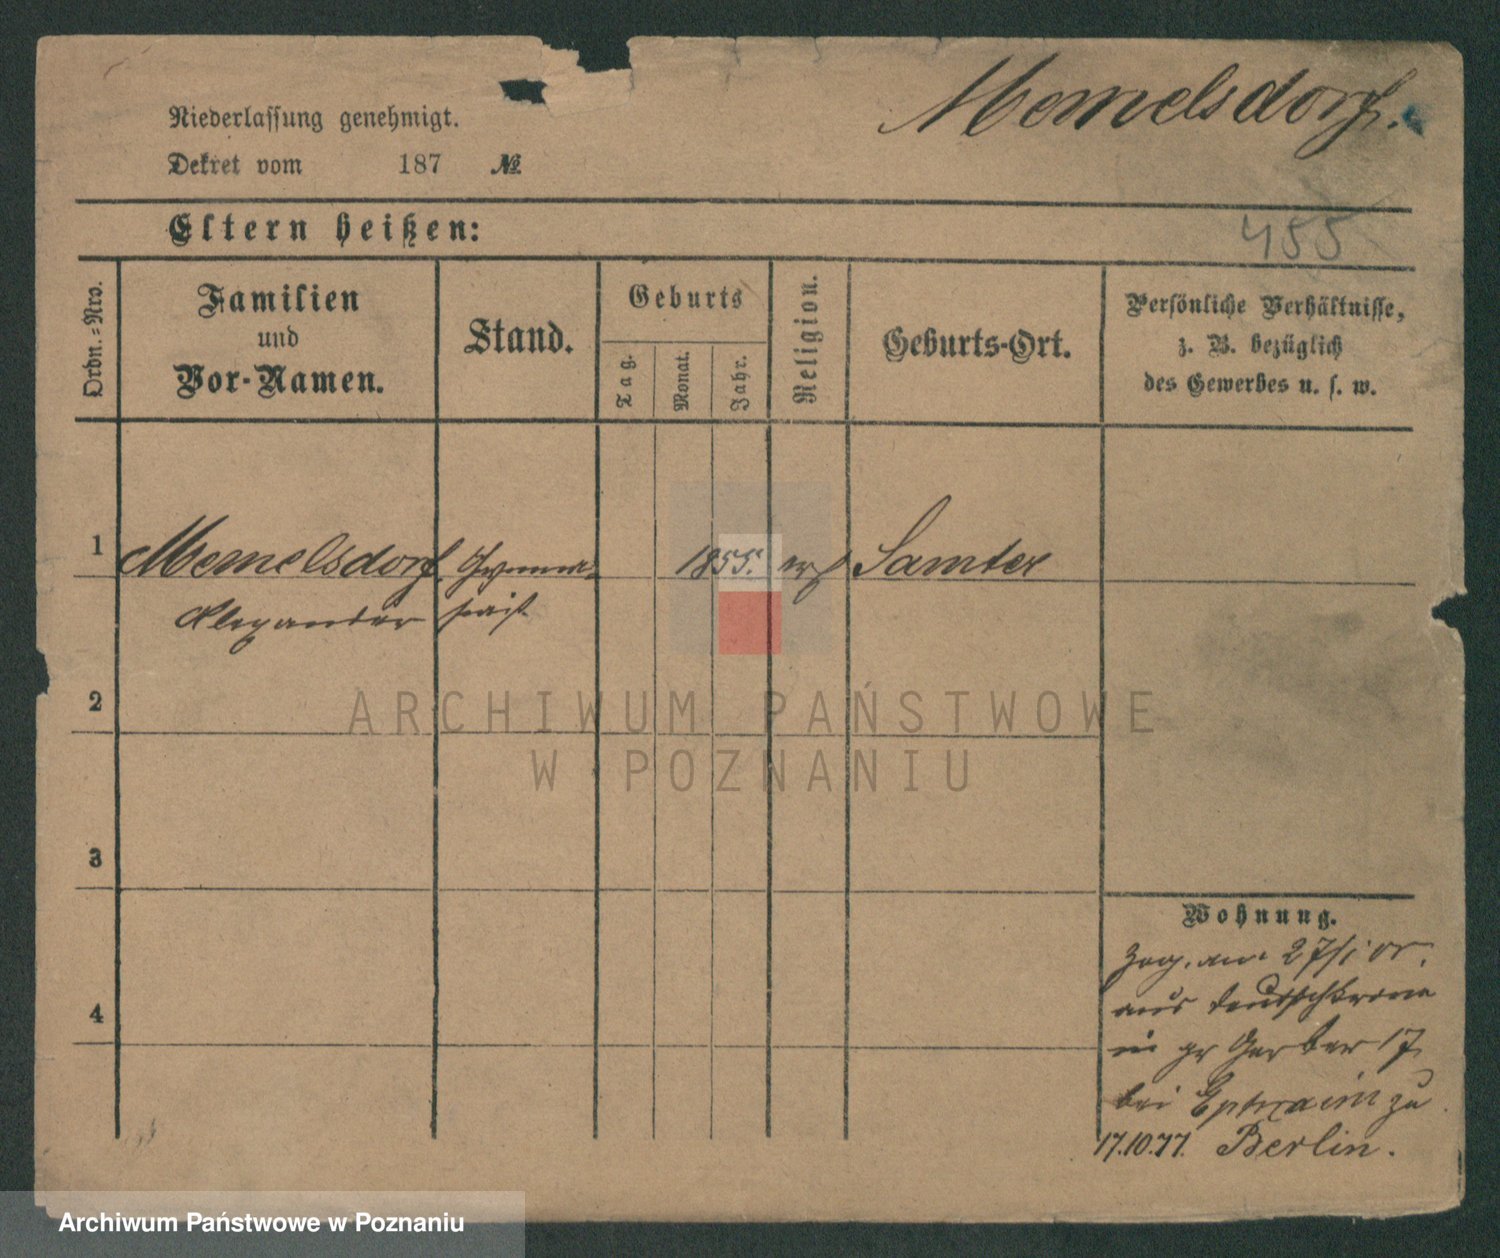 Memelsdorf.
Niederlassung genehmigt.
Dekret vom 187 №
Eltern heißen:
455
Ordn.-Nro.
Familien
und
Vor-Namen.
Stand.
Geburts
Tag.
Monat.
Jahr.
Religion.
Geburts-Ort.
Persönliche Verhältnisse,
z. B. bezüglich
des Gewerbes u. s. w.
1 Memelsdorf, Gymna- 1855. Samter
Alexander siast
2
ARCHIWUM PAŃSTWOWE
W POZNANIU
3
Wohnung.
Zog. am 27/1 cr.
aus Deutschkrone
4
in gr Gerber 17
bei Ephraim zu
17.10.77. Berlin.
Archiwum Państwowe w Poznaniu